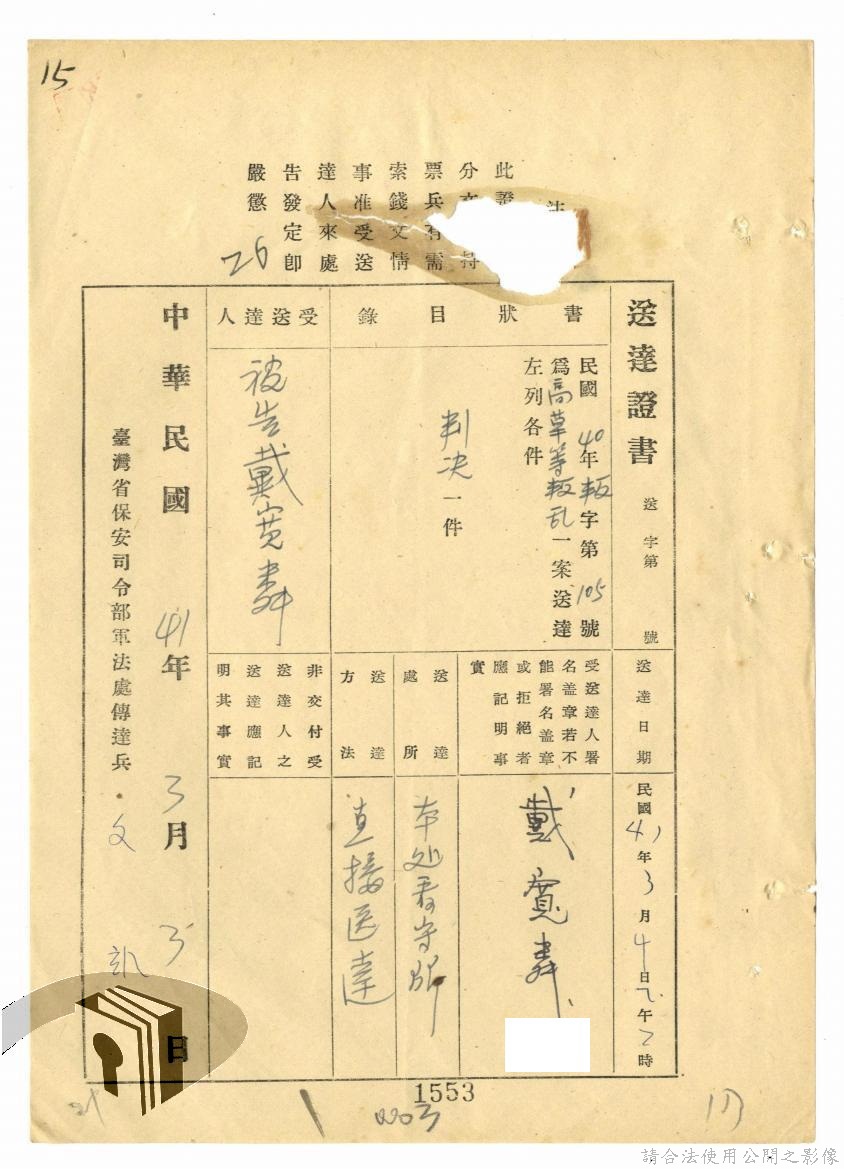 15
此
分
票兵有需
索錢文情
事准受送
達人來處
告發定卽
嚴懲
26
送達證書
送 字第 號
送達日期
民國41年3月4日 午 時
書狀目錄
民國40年叛字第105號
爲高草等叛乱一案送達
左列各件
判决一件
受送達人署
名盖章若不
能署名盖章
或拒絕者
應記明事
實
戴寬
送達處所
本处看守所
送達方法
直接送達
受送達人
被告戴寬
非交付受
送達人之
送達應記
明其事實
中華民國41年3月3日
臺灣省保安司令部軍法處傳達兵
1553
請合法使用公開之影像